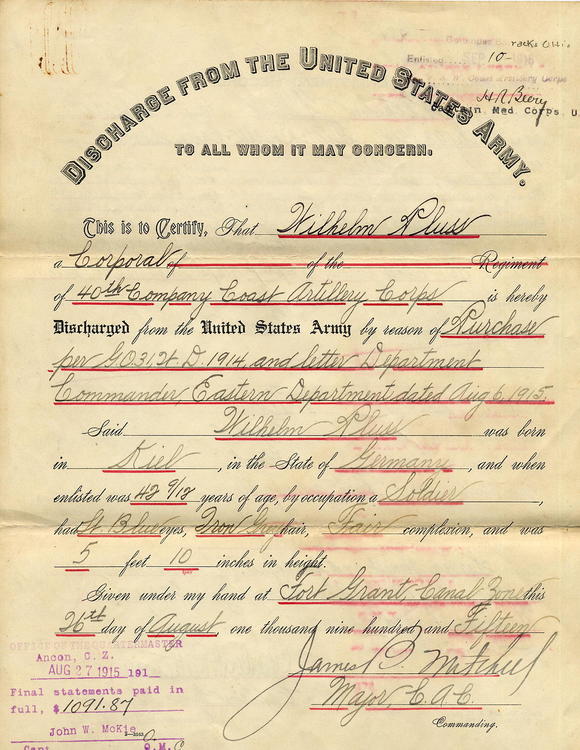 racks Ohio
Enlisted SEP 10
H R Beery
Captain Med. Corps U
DISCHARGE FROM THE UNITED STATES ARMY.
TO ALL WHOM IT MAY CONCERN.
This is to Certify, That Wilhelm Pluss
a Corporal of of the Regiment
of 40th Company Coast Artillery Corps is hereby
Discharged from the United States Army by reason of Purchase
per G.O. 31, W. D. 1914, and letter Department
Commander, Eastern Department dated Aug 6, 1915.
Said Wilhelm Pluss was born
in Kiel, in the State of Germany, and when
enlisted was 42 9/12 years of age, by occupation a Soldier,
had Lt. Blue eyes, Iron Gray hair, Fair complexion, and was
5 feet 10 inches in height.
Given under my hand at Fort Grant, Canal Zone this
26th day of August one thousand nine hundred and Fifteen
OFFICE OF THE QUARTERMASTER
Ancon, C. Z.
AUG 27 1915 191
Final statements paid in
full, $1091.87
John W. McKie
Capt. Q.M.C
James
Major, C.A.C.
Commanding.